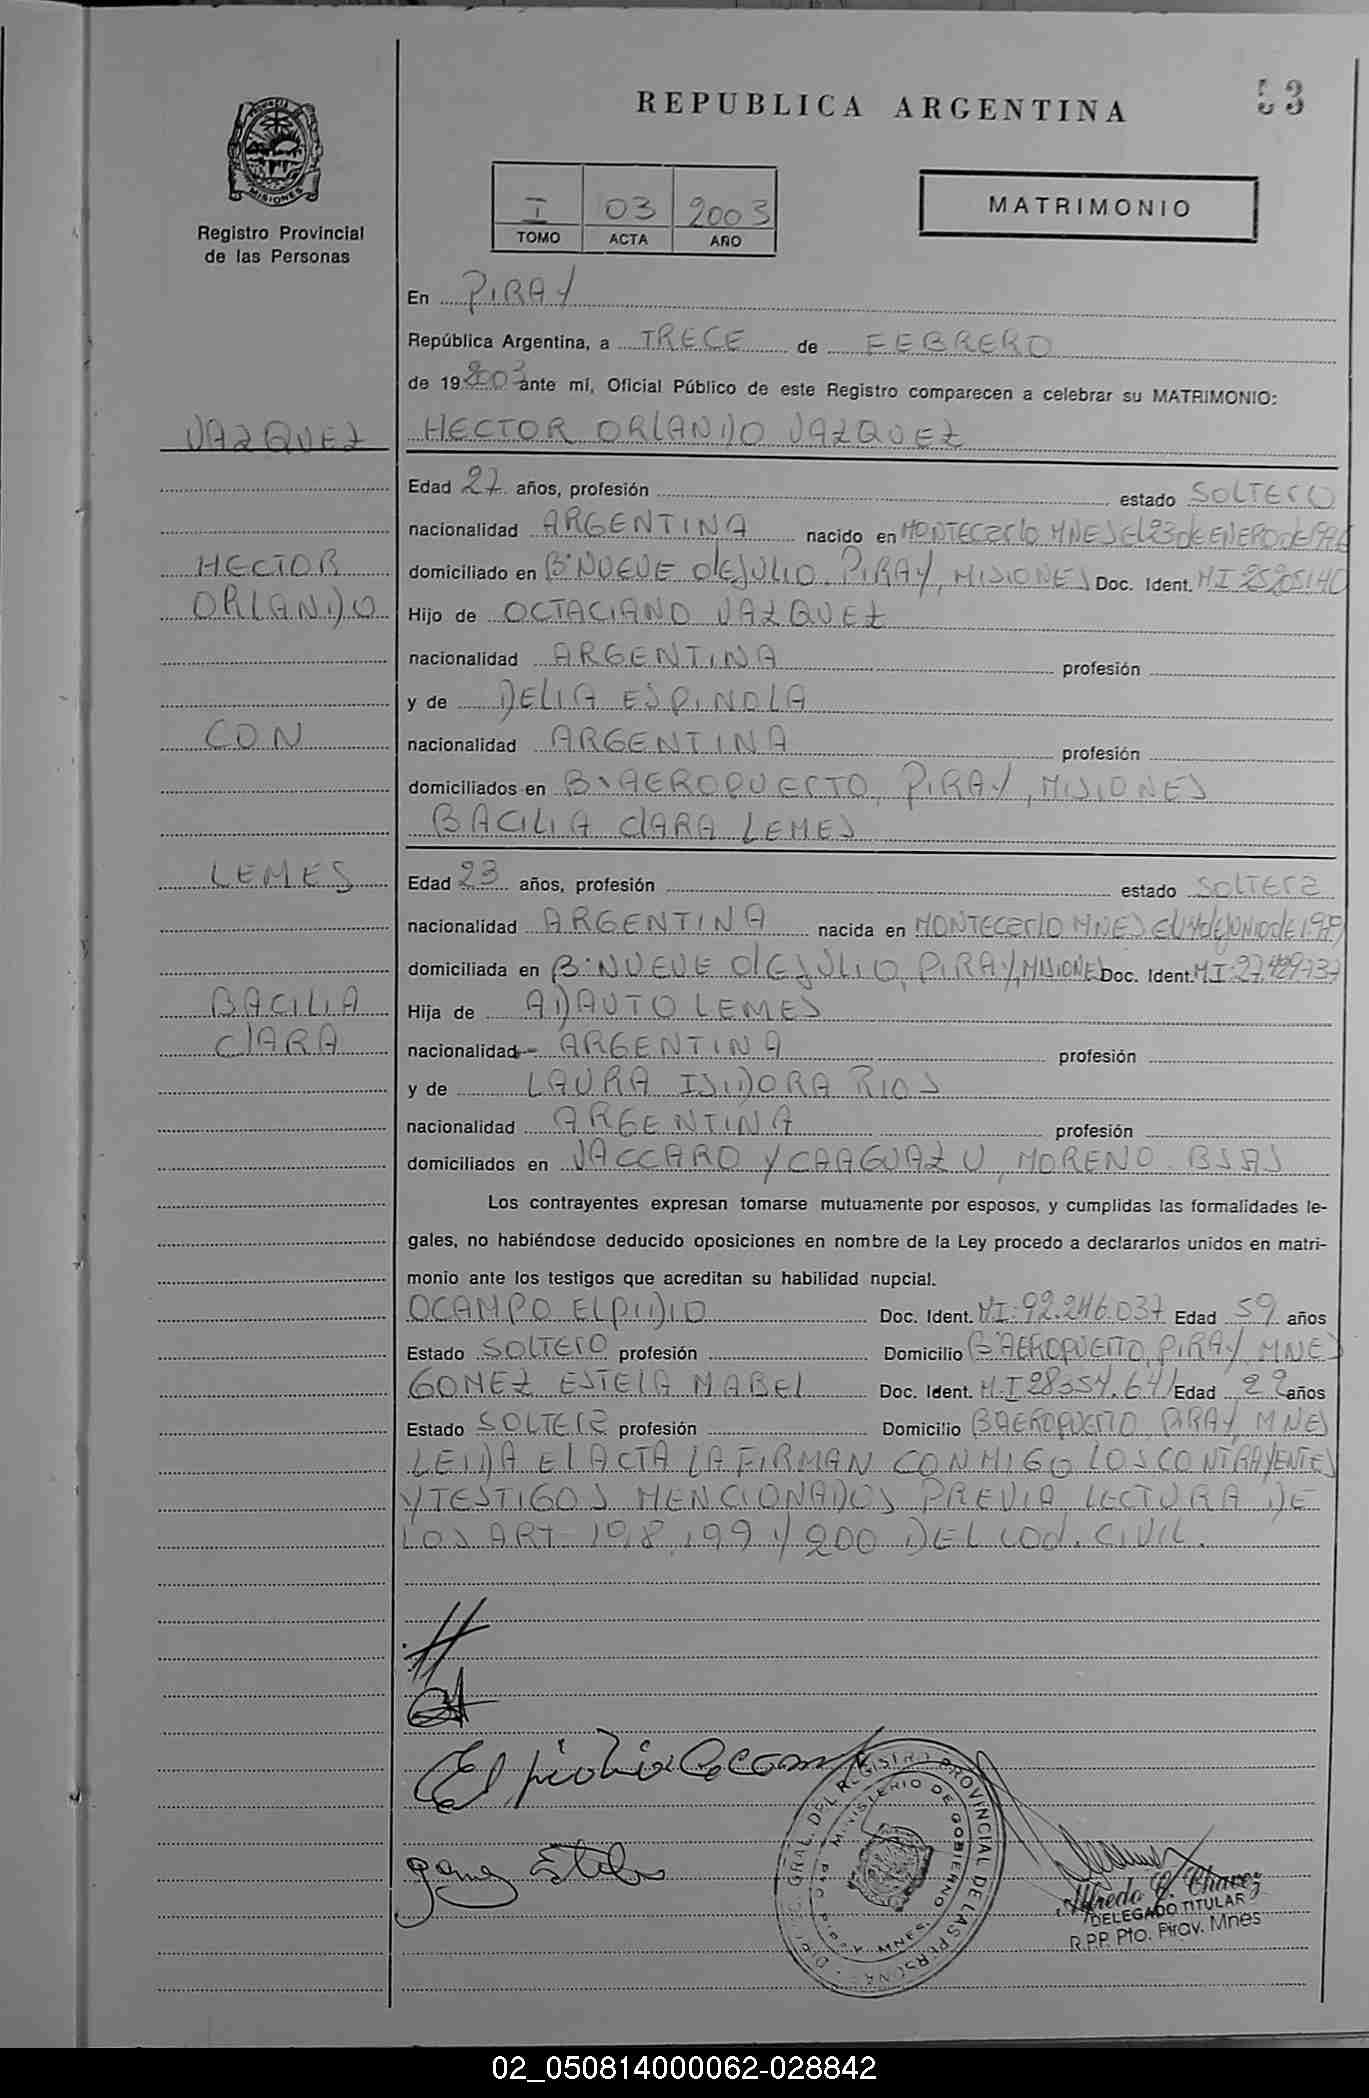 REPUBLICA ARGENTINA
53
MISIONES
Registro Provincial
de las Personas
I 03 2003
TOMO ACTA AÑO
MATRIMONIO
En PIRAY
República Argentina, a TRECE de FEBRERO
de 19 2003 ante mí, Oficial Público de este Registro comparecen a celebrar su MATRIMONIO:
VAZQUEZ HECTOR ORLANDO VAZQUEZ
Edad 27 años, profesión estado SOLTERO
nacionalidad ARGENTINA nacido en MONTECarlo MNES El 23 de ENERO de 1976
HECTOR domiciliado en B° NUEVE de JULIO, PIRAY, MISIONES Doc. Ident. MI 25205140
ORLANDO Hijo de OCTACIANO VAZQUEZ
nacionalidad ARGENTINA profesión
y de DELIA ESPINOLA
CON nacionalidad ARGENTINA profesión
domiciliados en B° AEROPUERTO, PIRAY, MISIONES
BACILIA ClARA LEMES
LEMES Edad 23 años, profesión estado SOLTERa
nacionalidad ARGENTINA nacida en MONTECarlO MNES El 14 de JUNIO de 1979
domiciliada en B° NUEVE de JULIO, PIRAY, MISIONES Doc. Ident. MI: 27.429737
BACILIA Hija de ADAUTO LEMES
ClARA nacionalidad ARGENTINA profesión
y de LAURA ISIDORA RIOS
nacionalidad ARGENTINA profesión
domiciliados en VACCARO Y CAAGUAZU, MORENO BSAS
Los contrayentes expresan tomarse mutuamente por esposos, y cumplidas las formalidades le-
gales, no habiéndose deducido oposiciones en nombre de la Ley procedo a declararlos unidos en matri-
monio ante los testigos que acreditan su habilidad nupcial.
OCAMPO ELPIDIO Doc. Ident. MI: 92.246.037 Edad 59 años
Estado SOLTERO profesión Domicilio B° AEROPUERTO, PIRAY, MNES
GOMEZ ESTELA MABEL Doc. Ident. M.I 28354.641 Edad 22 años
Estado SOLTERa profesión Domicilio B° AEROPUERTO PIRAY, MNES
LEIDA El ACTA LA FIRMAN CONMIGO LOS CONTRAYENTES
Y TESTIGOS MENCIONADOS PREVIA LECTURA DE
LOS ART 198, 199 Y 200 DEL COd. CIVIL.
Elpidio Ocampo
Gomez Estela
DIREC. GRAL. DEL REGISTRO PROVINCIAL DE LAS PERSONAS
MINISTERIO DE GOBIERNO
MNES
Alfredo C. Chavez
DELEGADO TITULAR
R.P.P. Pto. Piray. Mnes
02_050814000062-028842